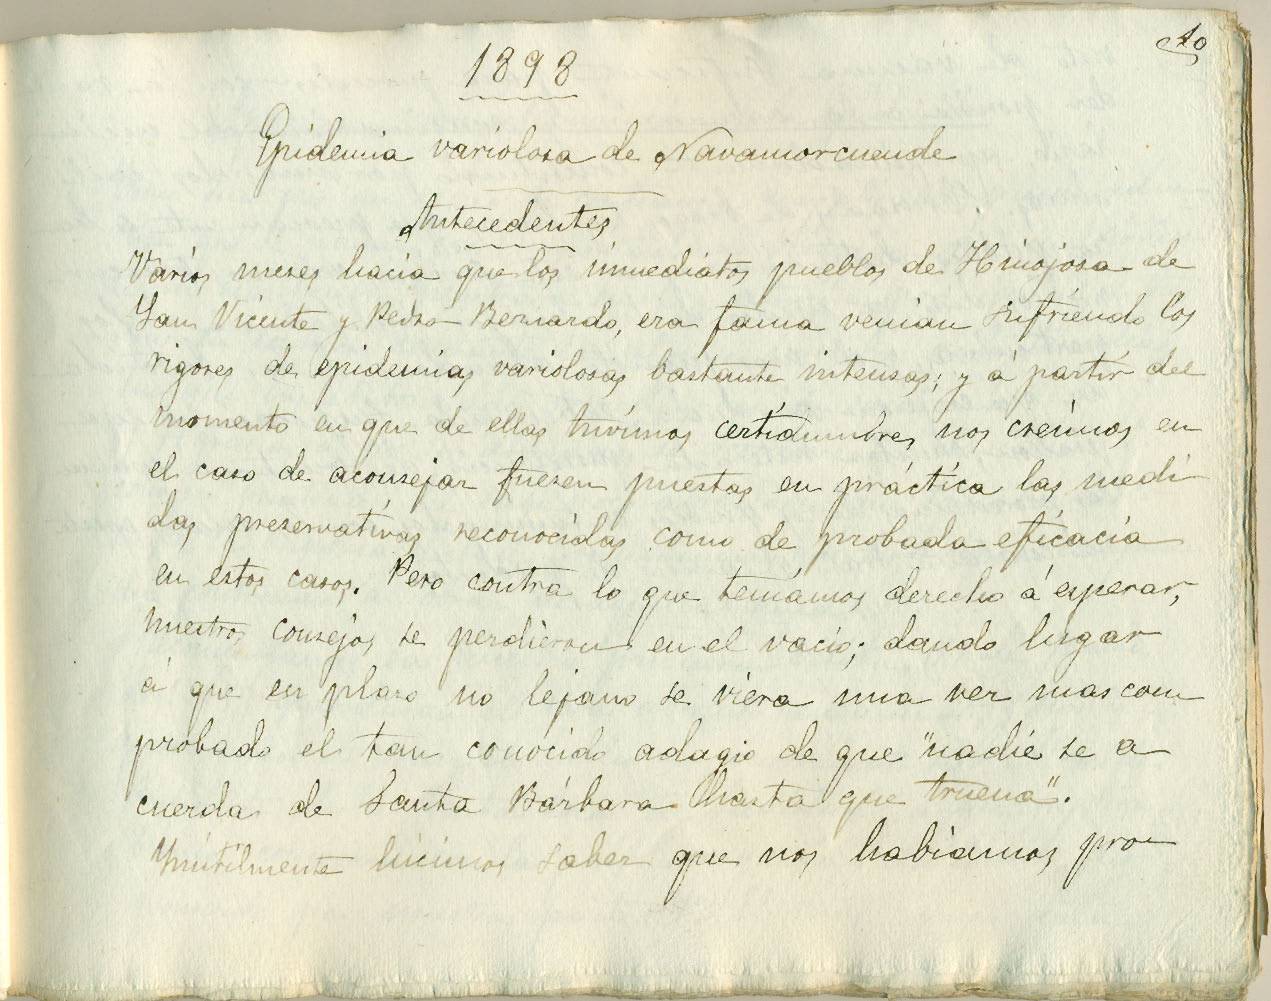 10
1898
Epidemia variolosa de Navamorcuende
Antecedentes
Varios meses hacía que los inmediatos pueblos de Hinojosa de
San Vicente y Pedro Bernardo, era fama venian sufriendo los
rigores de epidemias variolosas bastante intensas; y á partir del
momento en que de ellas tuvimos certidumbre, nos creimos en
el caso de aconsejar fuesen puestas en práctica las medi
das preservativas reconocidas como de probada eficacia
en estos casos. Pero contra lo que teníamos derecho á esperar,
nuestros consejos se perdieron en el vacio; dando lugar
á que en plazo no lejano se viera una vez mas com
probado el tan conocido adagio de que "nadie se a
cuerda de Santa Bárbara hasta que truena".
Inútilmente hicimos saber que nos habíamos pro